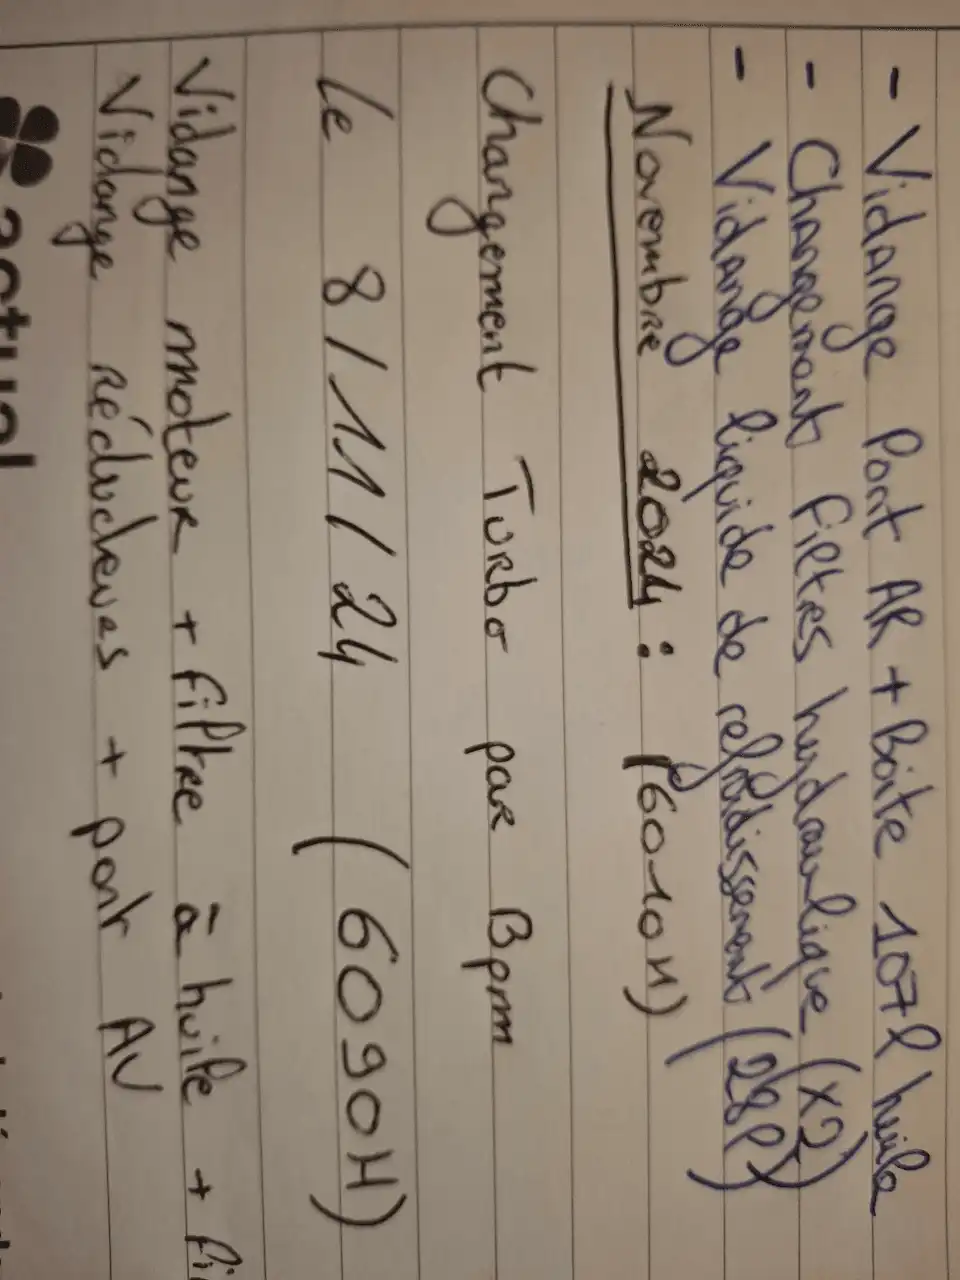 - Vidange Pont AR + Boite 107l huile
- Changement filtres hydraulique (x2)
- Vidange liquide de refroidissement (28l)
Novembre 2024 : (6010H)
Changement Turbo par Bpm
Le 8/11/24 (6090H)
Vidange moteur + filtre à huile +
Vidange réducteurs + pont AV
actual